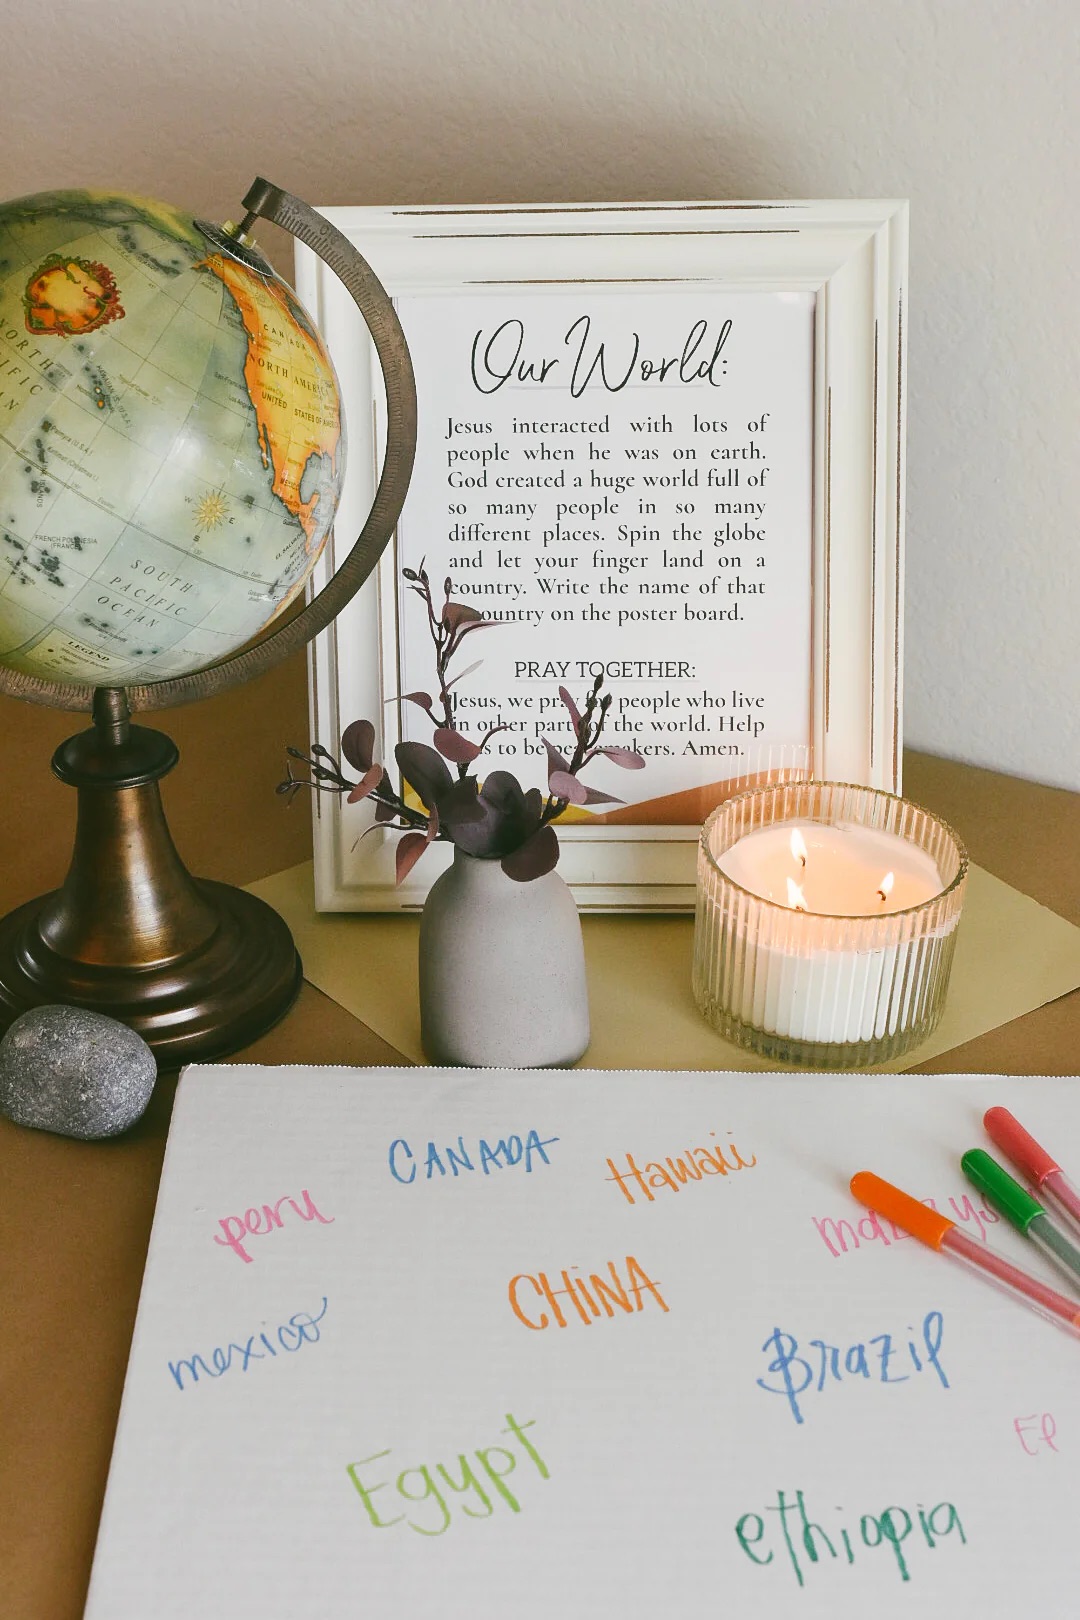 Our World:
Jesus interacted with lots of
people when he was on earth.
God created a huge world full of
so many people in so many
different places. Spin the globe
and let your finger land on a
country. Write the name of that
country on the poster board.
PRAY TOGETHER:
Jesus, we pray for people who live
in other parts of the world. Help
us to be peacemakers. Amen.
CANADA
NORTH AMERICA
UNITED STATES OF AMERICA
NORTH
PACIFIC
FRENCH POLYNESIA
(FRANCE)
W
E
S
SOUTH
PACIFIC
OCEAN
LEGEND
CANADA
Hawaii
peru
CHINA
mexico
Brazil
Egypt
ethiopia